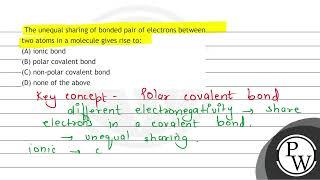 The unequal sharing of bonded pair of electrons between
two atoms in a molecule gives rise to:
(A) ionic bond
(B) polar covalent bond
(C) non-polar covalent bond
(D) none of the above
Key concept - Polar covalent bond
different electronegativity → share
electrons in a covalent bond.
→ unequal sharing.
ionic → c
PW